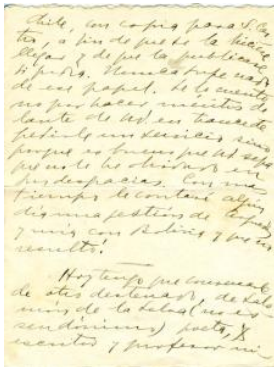 Chile, con copia para S. Cas
tro, a fin de que se la hiciera
llegar y de que la publicara
si podía. Nunca supe nada
de ese papel. Se lo cuento
no por hacer méritos de
lante de Ud. en trance de
pedirle un servicio sino
porque es bueno que Ud. sepa
que no le he olvidado en
sus desgracias. Con más
tiempo le contaré algún
día una gestión de
y mía con Bolivia y que no
resultó.
Hoy tengo que conversarle
de otro desterrado, de Salo
món de la Selva (no es
seudónimo) poeta,
escritor y profesor ni